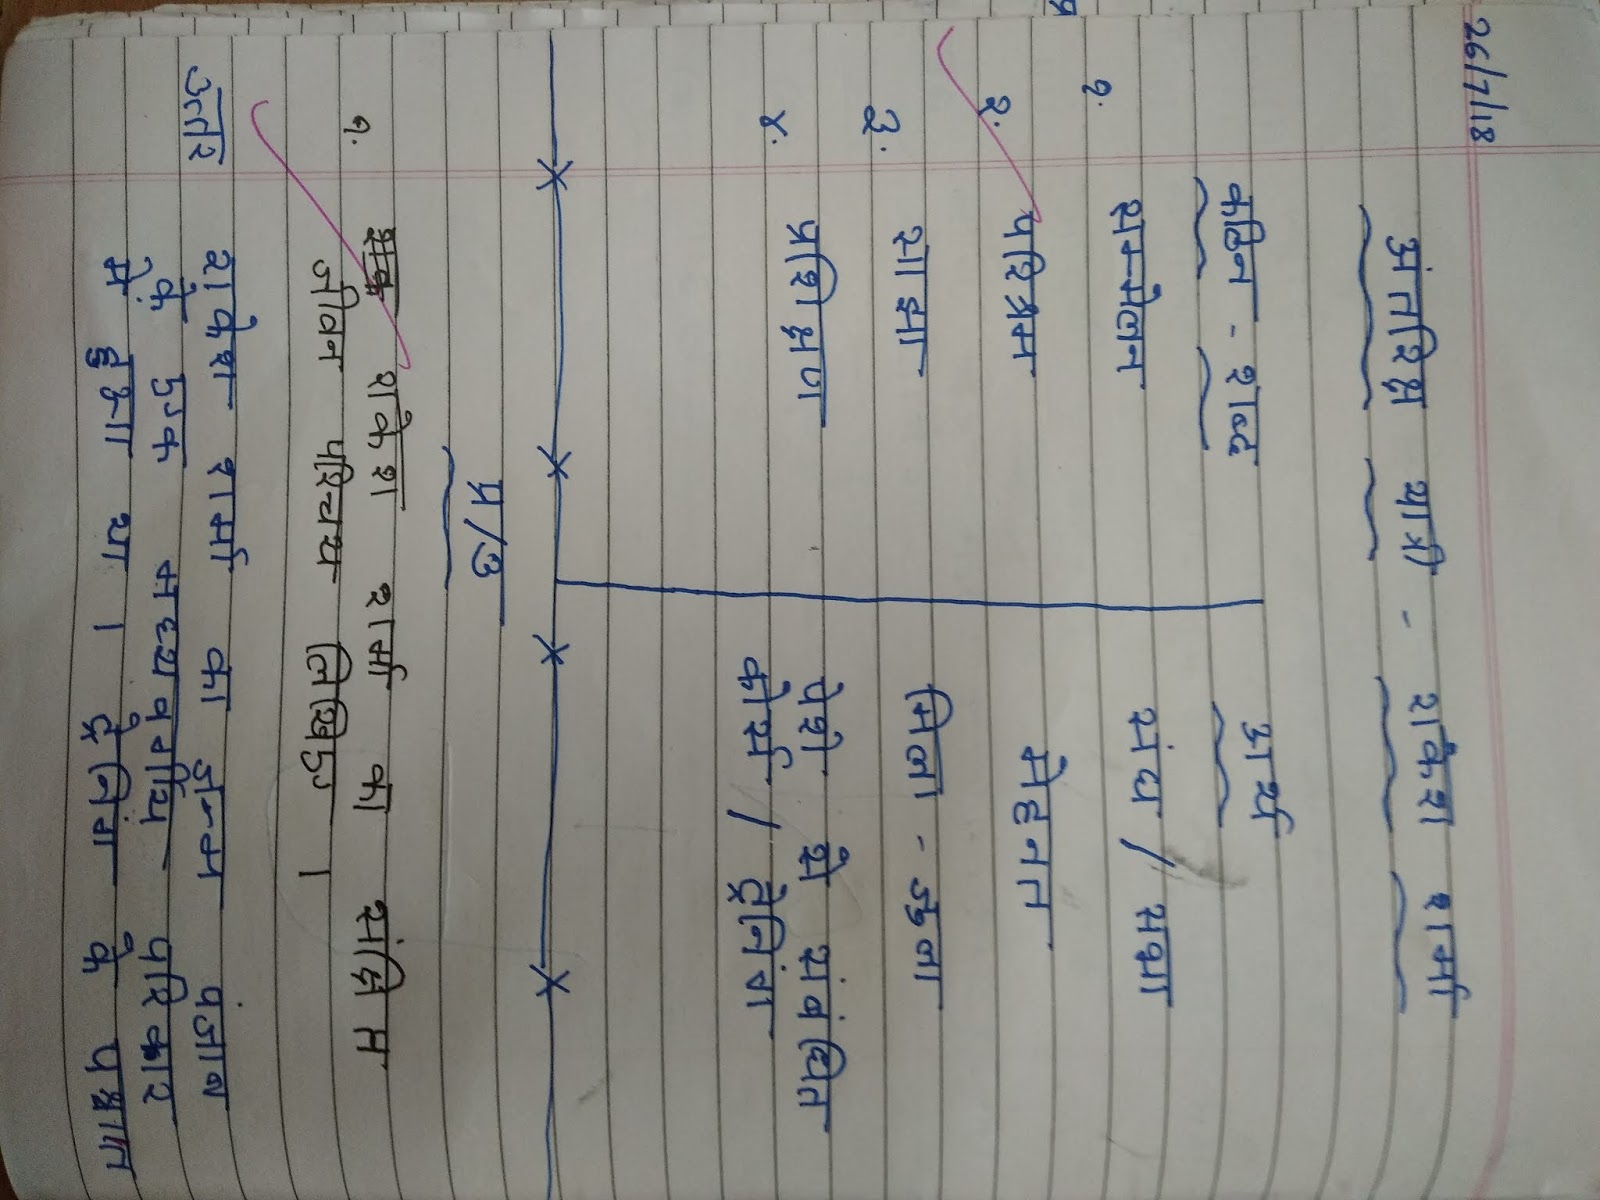 26/7/18
अंतरिक्ष यात्री - राकेश शर्मा
कठिन - शब्द अर्थ
१. सम्मेलन संघ / सभा
२. परिश्रम मेहनत
३. साझा मिला - जुला
४. प्रशिक्षण पेशे से संबंधित
कोर्स / ट्रेनिंग
प्र/उ
१. राकेश शर्मा का संक्षिप्त
जीवन परिचय लिखिए ।
उत्तर राकेश शर्मा का जन्म पंजाब
के एक मध्यवर्गीय परिवार
मे हुआ था । ट्रेनिंग के पश्चात